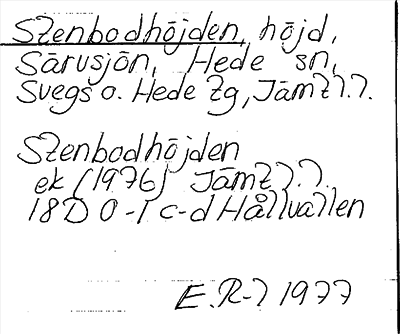 Stenbodhöjden, höjd,
Särvsjön, Hede sn,
Svegs o. Hede tg, Jämtl.l.
Stenbodhöjden
ek (1976) Jämtl.l.
18D 0-1 c-d Hållvallen
E.R-l 1977